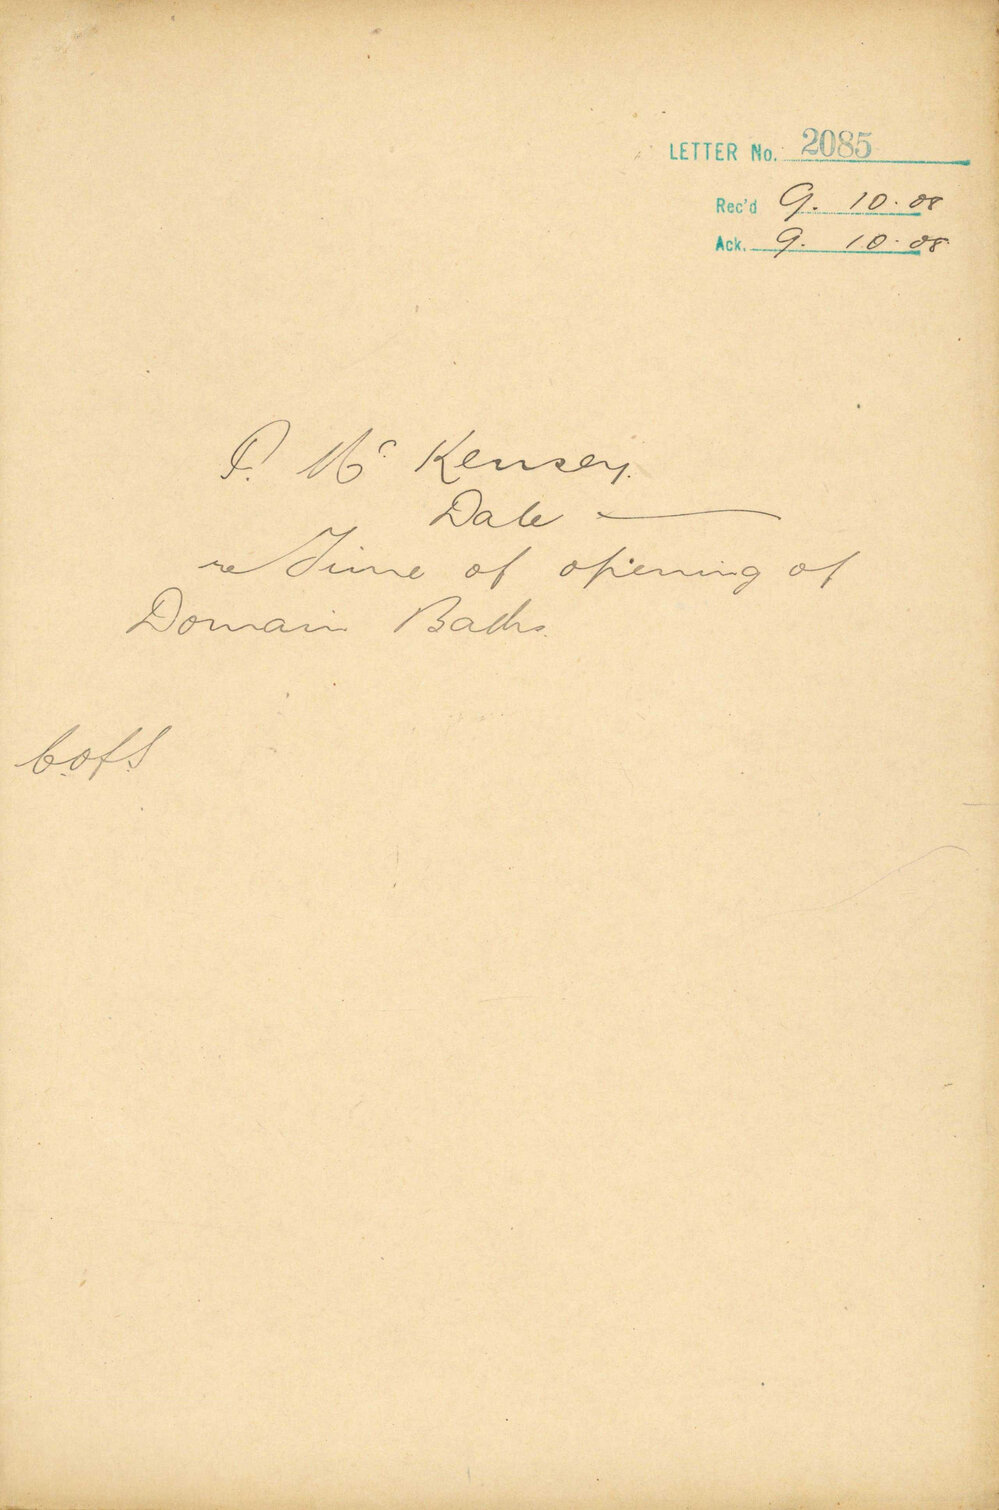 LETTER No. 2085
Rec'd 9. 10. 08
Ack. 9. 10. 08
P. Mc Kensey.
Date
re Time of opening of
Domain Baths.
C. of S.